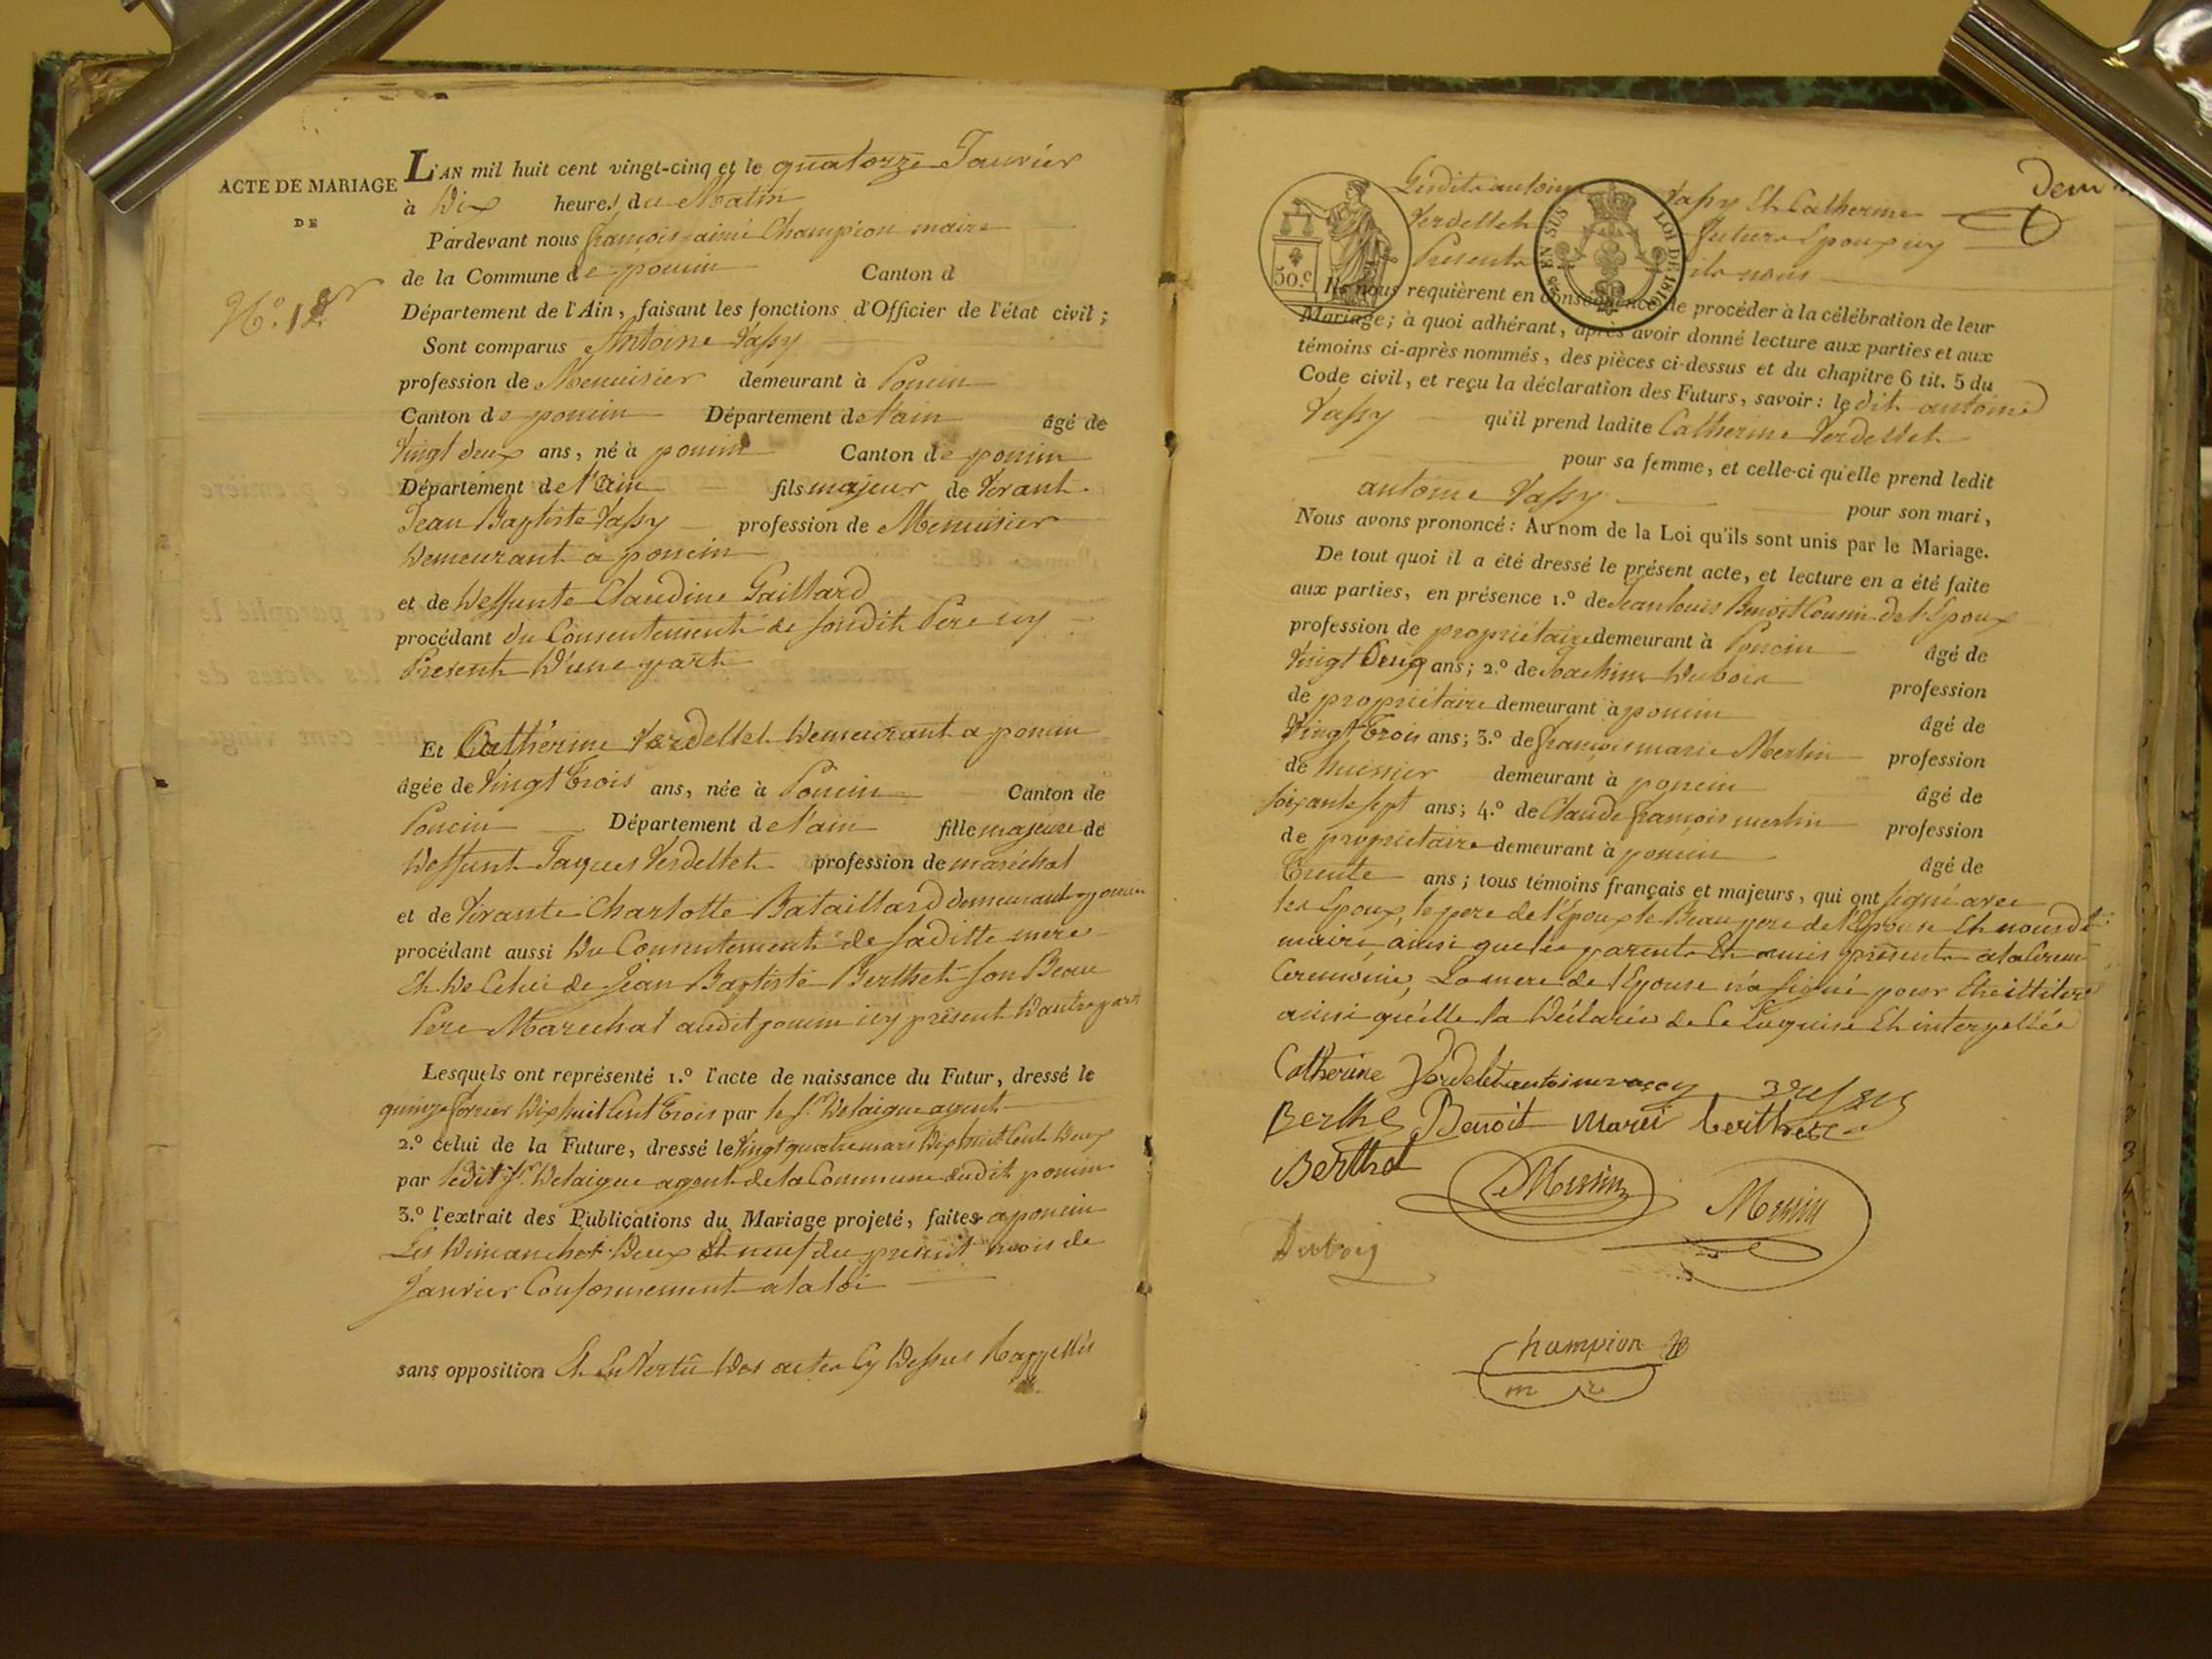 ACTE DE MARIAGE
DE
N.º 1er
L'AN mil huit cent vingt-cinq et le quatorze Janvier
à Dix heures du Matin
Pardevant nous françois aimé Champion maire
de la Commune de poncin Canton d
Département de l'Ain, faisant les fonctions d'Officier de l'état civil ;
Sont comparus Antoine Vassy
profession de Menuisier demeurant à Poncin
Canton de poncin Département de l'ain âgé de
Vingt deux ans, né à poncin Canton de poncin
Département de l'ain fils majeur de Vivant
Jean Baptiste Vassy profession de Menuisier
Demeurant a poncin
et de Deffunte Claudine Gaillard
procédant du Consentement de son dit Pere icy
Present D'une part
Et Catherine Verdellet Demeurant a poncin
âgée de Vingt Trois ans, née à Poncin Canton de
Poncin Département de l'ain fille majeure de
Deffunt Jacques Verdellet profession de maréchal
et de Vivante Charlotte Bataillard demeurant a poncin
procédant aussi Du Consentement de sa ditte mere
Et De Celui de Jean Baptiste Berthet son Beau
Pere Marechal audit poncin icy présent D'autre part
Lesquels ont représenté 1.º l'acte de naissance du Futur, dressé le
quinze janvier Dix huit Cent Trois par le Sr. Delaigue agent
2.º celui de la Future, dressé le Vingt quatre mars Dix huit Cent Deux
par ledit Sr. Delaigue agent de la Commune dudit poncin
3.º l'extrait des Publications du Mariage projeté, faites a poncin
Les Dimanches Deux Et neuf du présent mois de
Janvier Conformement a la loi
sans opposition Et En Vertu Des actes Cy Dessus Rappellés
50.c
EN SUS LOI DE 1816
Lesdits antoine Vassy Et Catherine
Verdellet future Epoux icy
Presents ils nous
Ils nous requièrent en conséquence de procéder à la célébration de leur
Mariage ; à quoi adhérant, après avoir donné lecture aux parties et aux
témoins ci-après nommés, des pièces ci-dessus et du chapitre 6 tit. 5 du
Code civil, et reçu la déclaration des Futurs, savoir : ledit antoine
Vassy qu'il prend ladite Catherine Verdellet
pour sa femme, et celle-ci qu'elle prend ledit
antoine Vassy pour son mari,
Nous avons prononcé : Au nom de la Loi qu'ils sont unis par le Mariage.
De tout quoi il a été dressé le présent acte, et lecture en a été faite
aux parties, en présence 1.º de Jean louis Benoit Cousin de l'Epoux
profession de propriétaire demeurant à Poncin âgé de
Vingt Cinq ans ; 2.º de Joachim Dubois profession
de propriétaire demeurant à poncin âgé de
Vingt Trois ans ; 3.º de françois marie Merlin profession
de huissier demeurant à poncin âgé de
soixante sept ans ; 4.º de Claude françois merlin profession
de propriétaire demeurant à poncin âgé de
Trente ans ; tous témoins français et majeurs, qui ont signé avec
les Epoux, le pere de l'Epoux le Beau pere de l'Epouse Et nous dit
maire ainsi que les parents Et amis présents a la Cerem
Ceremonie, La mere de l'Epouse n'a signé pour Etre illitere
ainsi qu'elle la Déclarée de Ce Requise Et interpellée
Catherine Verdelet antoine vaccy
Berthe Benoit Marie berthet
Berthet Merlin Merlin
Dubois
Champion
m re